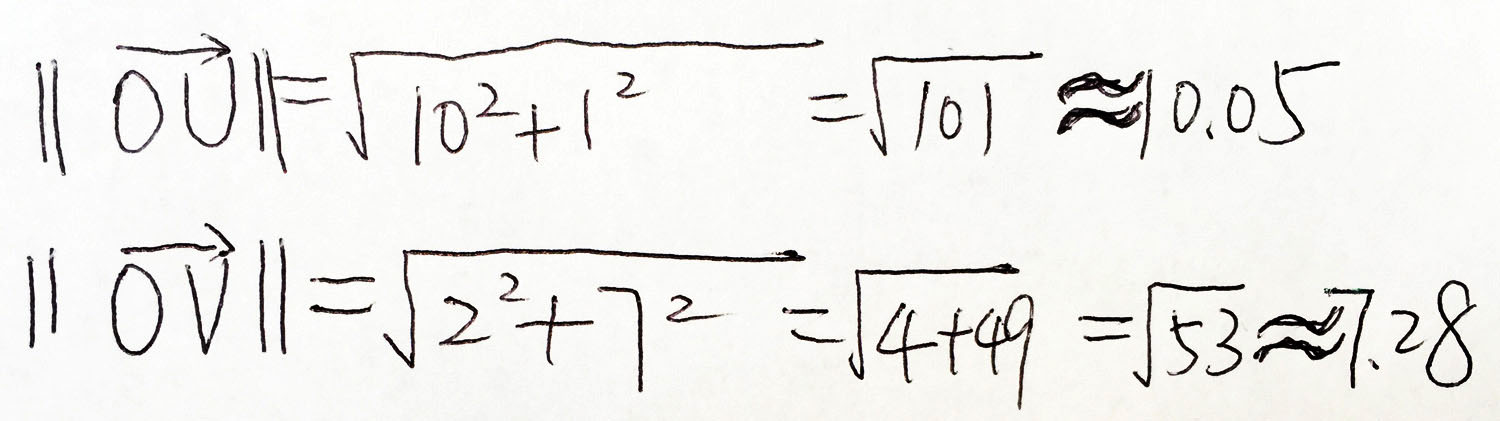 ‖ \overrightarrow{OU} ‖ = √(10² + 1²) = √101 ≈ 10.05
‖ \overrightarrow{OV} ‖ = √(2² + 7²) = √(4+49) = √53 ≈ 7.28